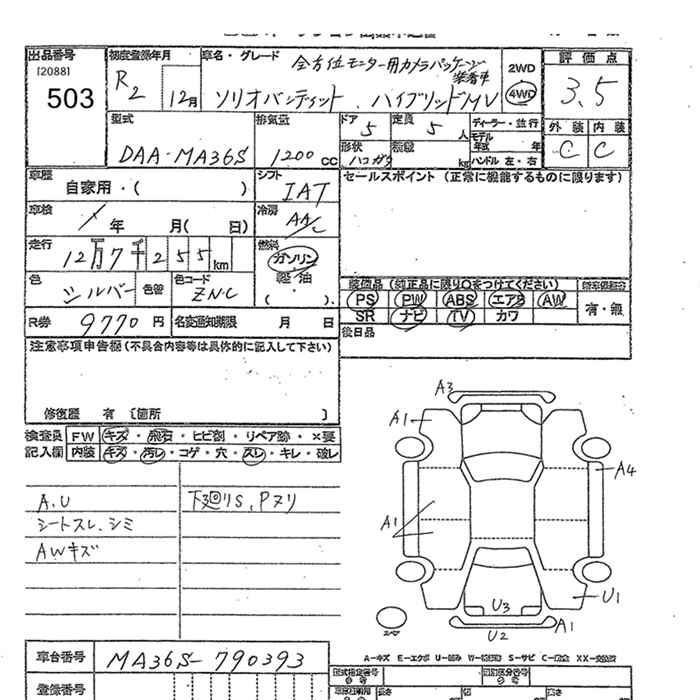 出品番号
[2088]
503
初度登録年月
R2 12月
車名・グレード
全方位モニター用カメラパッケージ
装着車
ソリオバンディット、ハイブリッドMV
2WD
4WD
評価点
3.5
外装 内装
C C
型式
DAA-MA36S
排気量
1200 cc
ドア
5
定員
5 人
形状
ハコガタ
積載
kg
ディーラー・並行
モデル
年式 年
ハンドル 左・右
車歴
自家用・( )
シフト
IAT
セールスポイント (正常に機能するものに限ります)
車検
年 月( 日)
冷房
AAC
走行
12万7千255km
燃料
ガソリン
軽油
・
( ).
色
シルバー
色替
色コード
ZNC
装備品 (純正品に限り○をつけてください)
PS PW ABS エアB AW
SR ナビ TV カワ
有・無
R券 9770円
名変通知期限 月 日
後日品
注意事項申告欄(不具合内容等は具体的に記入して下さい)
修復歴 有 〔箇所 〕
検査員
記入欄
FW キズ・飛石・ヒビ割・リペア跡・×要
内装 キズ・汚レ・コゲ・穴・スレ・キレ・破レ
A.U
シートスレ、シミ
AWキズ
下廻りS、Pヌリ
A3
A1
A4
A1
U1
U3
U2
A1
スペア
車台番号 MA36S-790393
登録番号
A-キズ E-エクボ U-凹み W-補修跡 S-サビ C-腐食 XX-交換済
型式指定番号
類別区分番号
長さ
幅
高さ